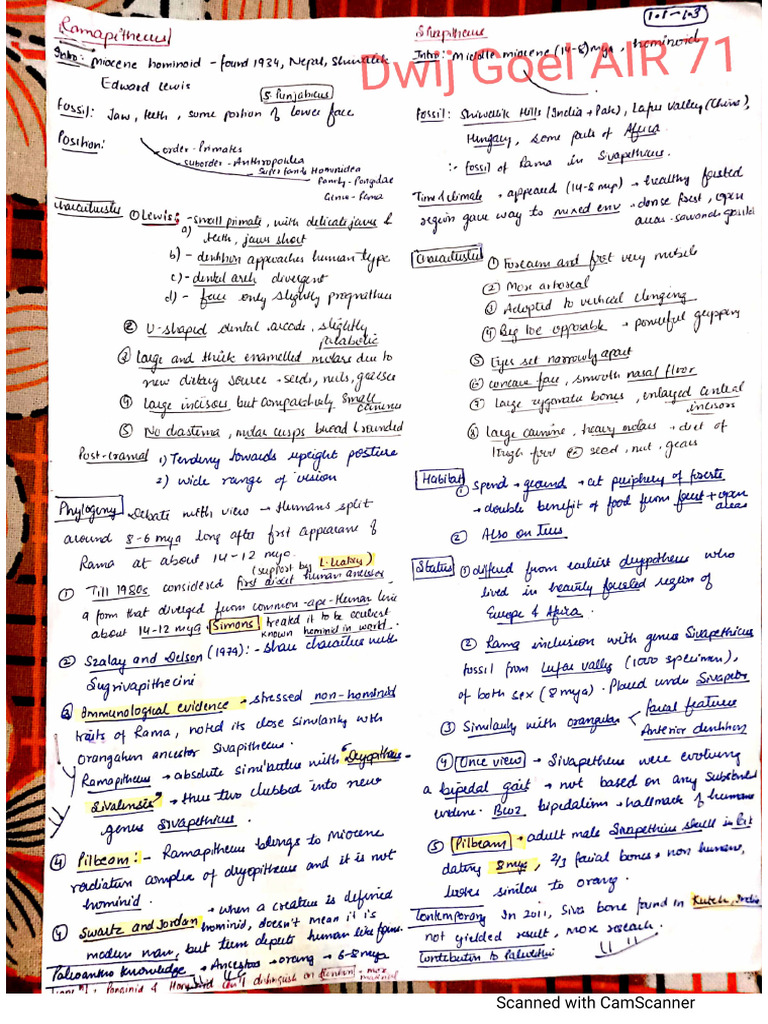 Ramapithecus
Intro: Miocene hominoid - found 1934, Nepal, Shiwalik
Edward Lewis
S. Punjabicus
Fossil: Jaw, teeth, some portion of lower face
Position:
order - Primates
suborder - Anthropoidea
Super family Hominidea
Family - Pongidae
Genus - Rama
Characteristics ① Lewis: - small primate, with delicate jaws &
a) teeth, jaws short
b) - dentition approaches human type
c) - dental arch divergent
d) - face only slightly prognathus
② U-shaped dental arcade, slightly
parabolic
③ large and thick enamelled molars due to
new dietary source → seeds, nuts, grasses
④ large incisors but comparatively small
canines
⑤ No diastema, molar cusps broad & rounded
Post-cranial 1) Tendency towards upright posture
2) wide range of vision
Phylogeny → Debate with view → Humans split
around 8-6 mya long after first appearance of
Rama at about 14-12 mya.
(support by L. Leakey)
① Till 1980s considered first direct human ancestor
a form that diverged from common-ape-Human line
about 14-12 mya. Simons treated it to be earliest
known hominid in world.
② Szalay and Delson (1979): - share characters with
Sugrivapithecini
③ Immunological evidence → stressed non-hominid
traits of Rama, noted its close similarity with
orangutan ancestor Sivapithecus.
Ramapithecus → absolute similarities with "Dryopithecus
Sivalensis" → thus two clubbed into new
genus Sivapithecus.
④ Pilbeam: - Ramapithecus belongs to Miocene
radiation complex of dryopithecus and it is not
hominid.
⑤ Swartz and Jordan → when a creature is defined
hominid, doesn't mean it is
modern man, but term depicts human like form.
Paleoanthro knowledge → Ancestor → orang → 6-8 mya
1.01-1.03
Sivapithecus
Intro: Middle miocene (14-8) mya, hominoid
Dwij Goel AIR 71
Fossil: Shiwalik Hills (India + Pak), Lufeng valley (China),
Hungary, some parts of Africa.
:- fossil of Rama in Sivapethicus.
Time & climate → appeared (14-8 mya) → heavily forested
region gave way to mixed env → dense forest, open
areas -
Characteristics ① Forearm and foot very mobile
② More arboreal
③ Adapted to vertical clinging
④ Big toe opposable → powerful gripping
⑤ Eyes set narrowly apart
⑥ concave face, smooth nasal floor
⑦ large zygomatic bones, enlarged central
incisors
⑧ large canine, heavy molars → diet of
tough food seed, nut, grass
Habitat ① Spend → ground → at periphery of forests
→ double benefit of food from forest + open
areas
② Also on trees
Status ① differed from earliest dryopithecus who
lived in heavily forested region of
Europe & Africa.
② Rama inclusion with genus Sivapethicus
fossil from Lufeng valley (1000 specimen),
of both sex (8 mya). Placed under
③ Similarity with orangutan < facial features
Anterior dentition
④ Once view → Sivapethecus were evolving
a bipedal gait → not based on any substantial
evidence. Bcoz bipedalism → hallmark of humans
⑤ Pilbeam → adult male Sivapethicus skull in Pak
dating 8 mya, 2/3 facial bones → non human,
looks similar to orang.
Contemporary In 2011, Siva bone found in Kutch, India
not yielded result, more research.
Contribution to
Scanned with CamScanner